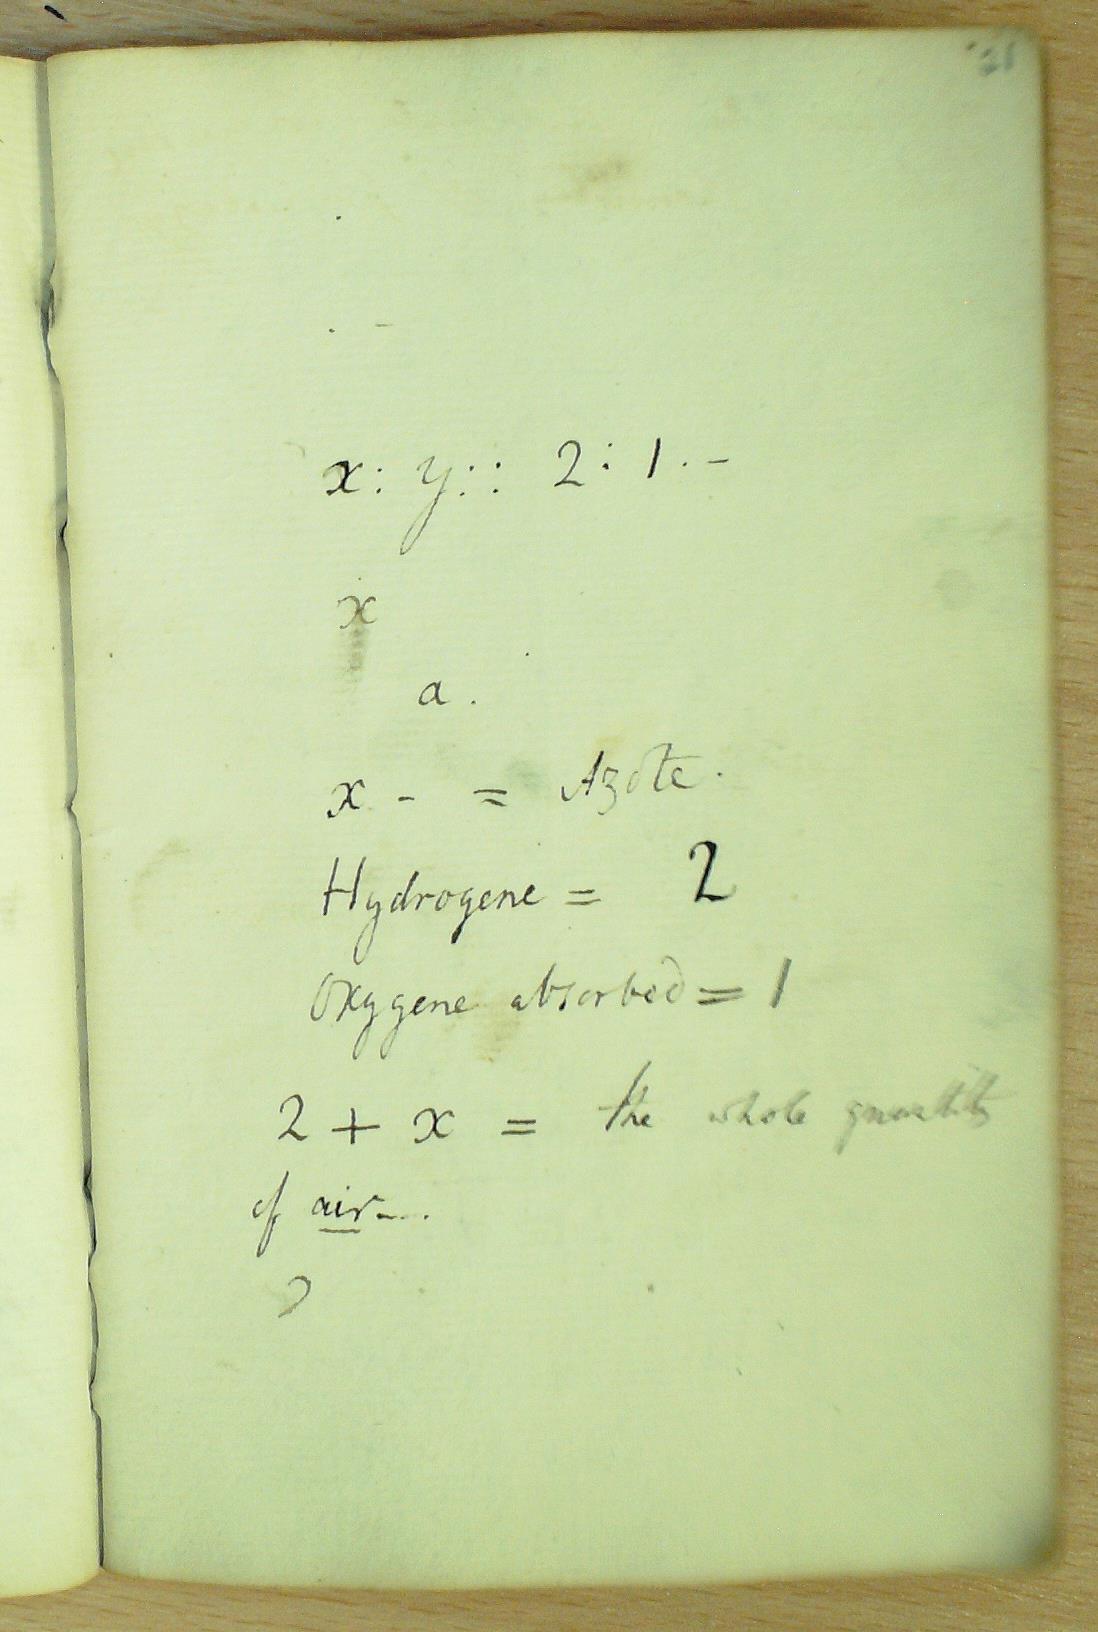 x : y :: 2 : 1 . -
x
a .
x - = Azote .
Hydrogene = 2
Oxygene absorbed = 1
2 + x = the whole quantity
of air - . .